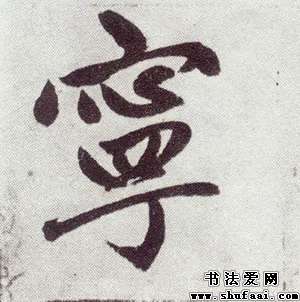 寧
书法爱网
www.shufaai.com